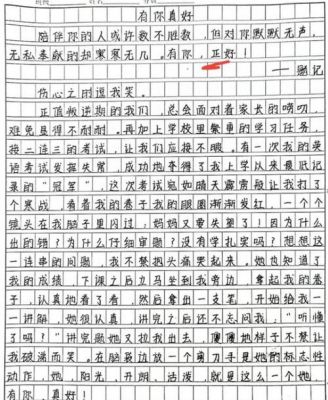 有你真好
陪伴你的人或许数不胜数，但对你默默无声，
无私奉献的却寥寥无几。有你，正好！
——题记
伤心之时逗我笑。
正值叛逆期的我们，总会面对着家长的唠叨，
难免显得不耐耐。再加上学校里繁重的学习任务，
接二连三的考试，让我们应接不暇。有一次我的英
语考试发挥失常，成功地夺得了我上学以来最低记
录的“冠军”，这次考试宛如晴天霹雳般让我打了
个寒战，看着我的卷子我的眼圈渐渐发红，一个个
镜头在我脑子里闪过，妈妈又要失望了！因为什么
出的错？为什么仔细审题？没有学扎实吗？想想这
一连串的问题，我不禁把头痛哭起来。她也知道了
我的成绩，下课之后立马坐到我旁边，拿起我的卷
子，认真地看了看，然后拿出一支笔，开始给我一
一讲解，她很认真，讲完之后还不忘问我，“听懂
了吗？”讲完题她又拉我出去，傻傻地样子不禁让
我破涕而笑。在脑袋边放一个剪刀手是她的标志性
动作，她，阳光、开朗、活泼，就是这么一个她，
有你，真好！